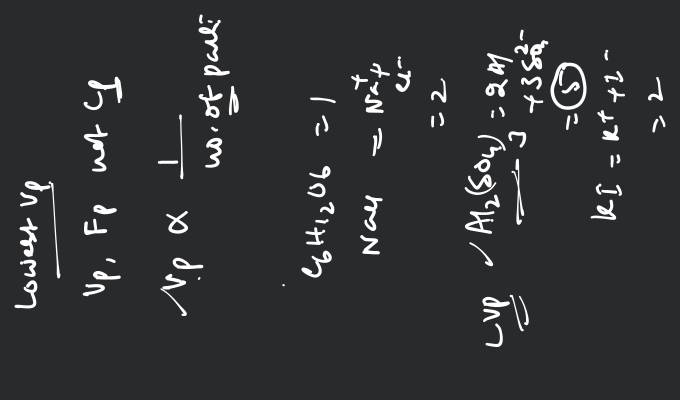 Lowest Vp
Vp, Fp not Cp
✓Vp ∝ 1
no. of parti
C6H12O6 = 1
NaCl = Na+ + Cl-
= 2
LVP ✓ Al2(SO4)3 = 2Al + 3SO4 2-
= 5
KI = K+ + I-
= 2